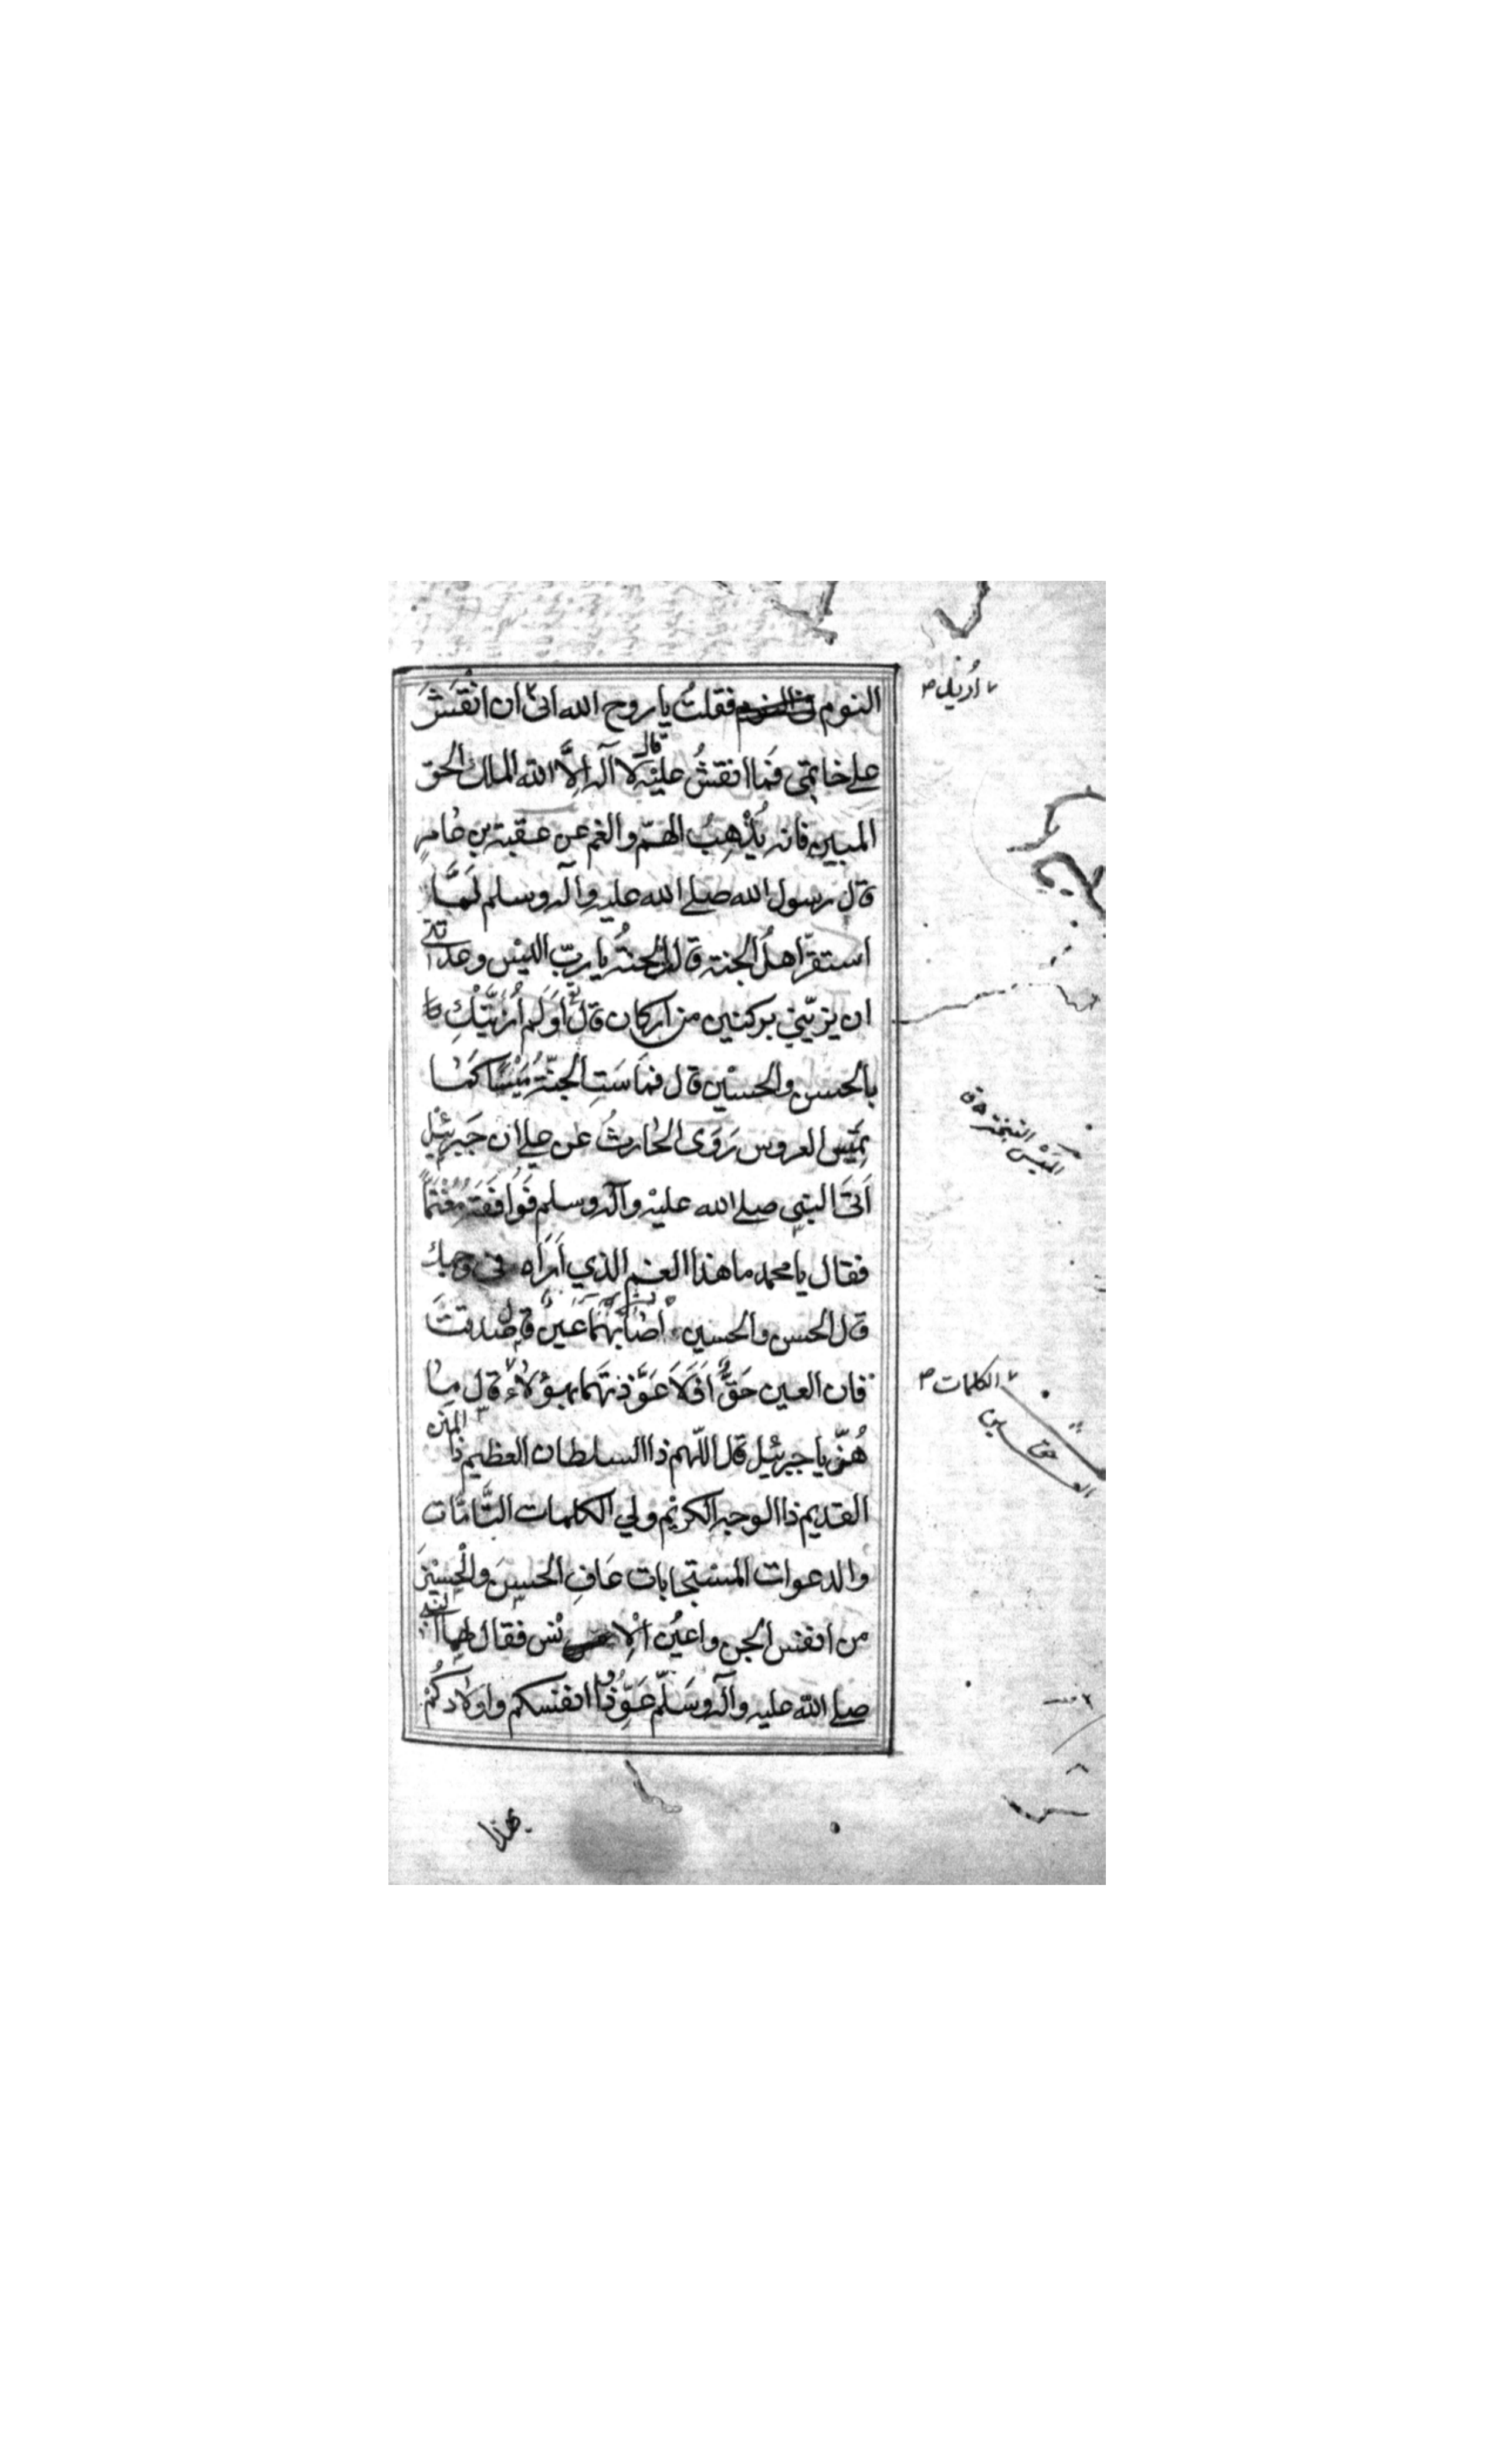 النوم فقلتُ يا روح الله انى ان انْقَشَ
علے خاتمى فَما انقشُ عليْه قال لا آله اِلَّا الله الملك الحق
المبين فانه يُذْهِبُ الهمّ والغم عن عقبة بن عامرٍ
قال رسول الله صلے الله عليه وآله وسلم لَمَّا
استقرّ اهلُ الجنة قالت الجنةُ يا ربّ اليس وعدتنى
ان يزيّني بركنين من اركان قال اَوَلَم اُزَيّنْكِ
بالحسن والحسين قال فمَاسَتِ الجنّةُ مَيْسًا كَمَا
تَمِيس العروس رَوَى الحٰارثُ عن علے ان جَبرئيل
اَتَى النبى صلے الله عليْه وآله وسلم فَوافَقَهُ مُغْتَمًّا
فقال يا محمد ما هذا الغم الذي اَرَاه في وجهك
قال الحسن والحسين اصٰابَهُما عَينٌ قال صدقتَ
فان العين حَقٌّ اَفَلَا عَوَّذتَهما بهؤلاء قال مٰا
هُنّ يا جبرئيل قال اللّهم ذا السلطان العظيم ذا المَنّ
القديم ذا الوجه الكريْم ولي الكلمات التَّامّات
والدعوات المستجابات عَافِ الحَسنَ والْحُسَيْنَ
من انفس الجن واعيُن الْاِنس فقال لهما النبى
صلے الله عليه وآله وسَلّم عَوِّذُوا انفسكم واولادكُم
الميْس التبختر ق
الكلمات
بهذا